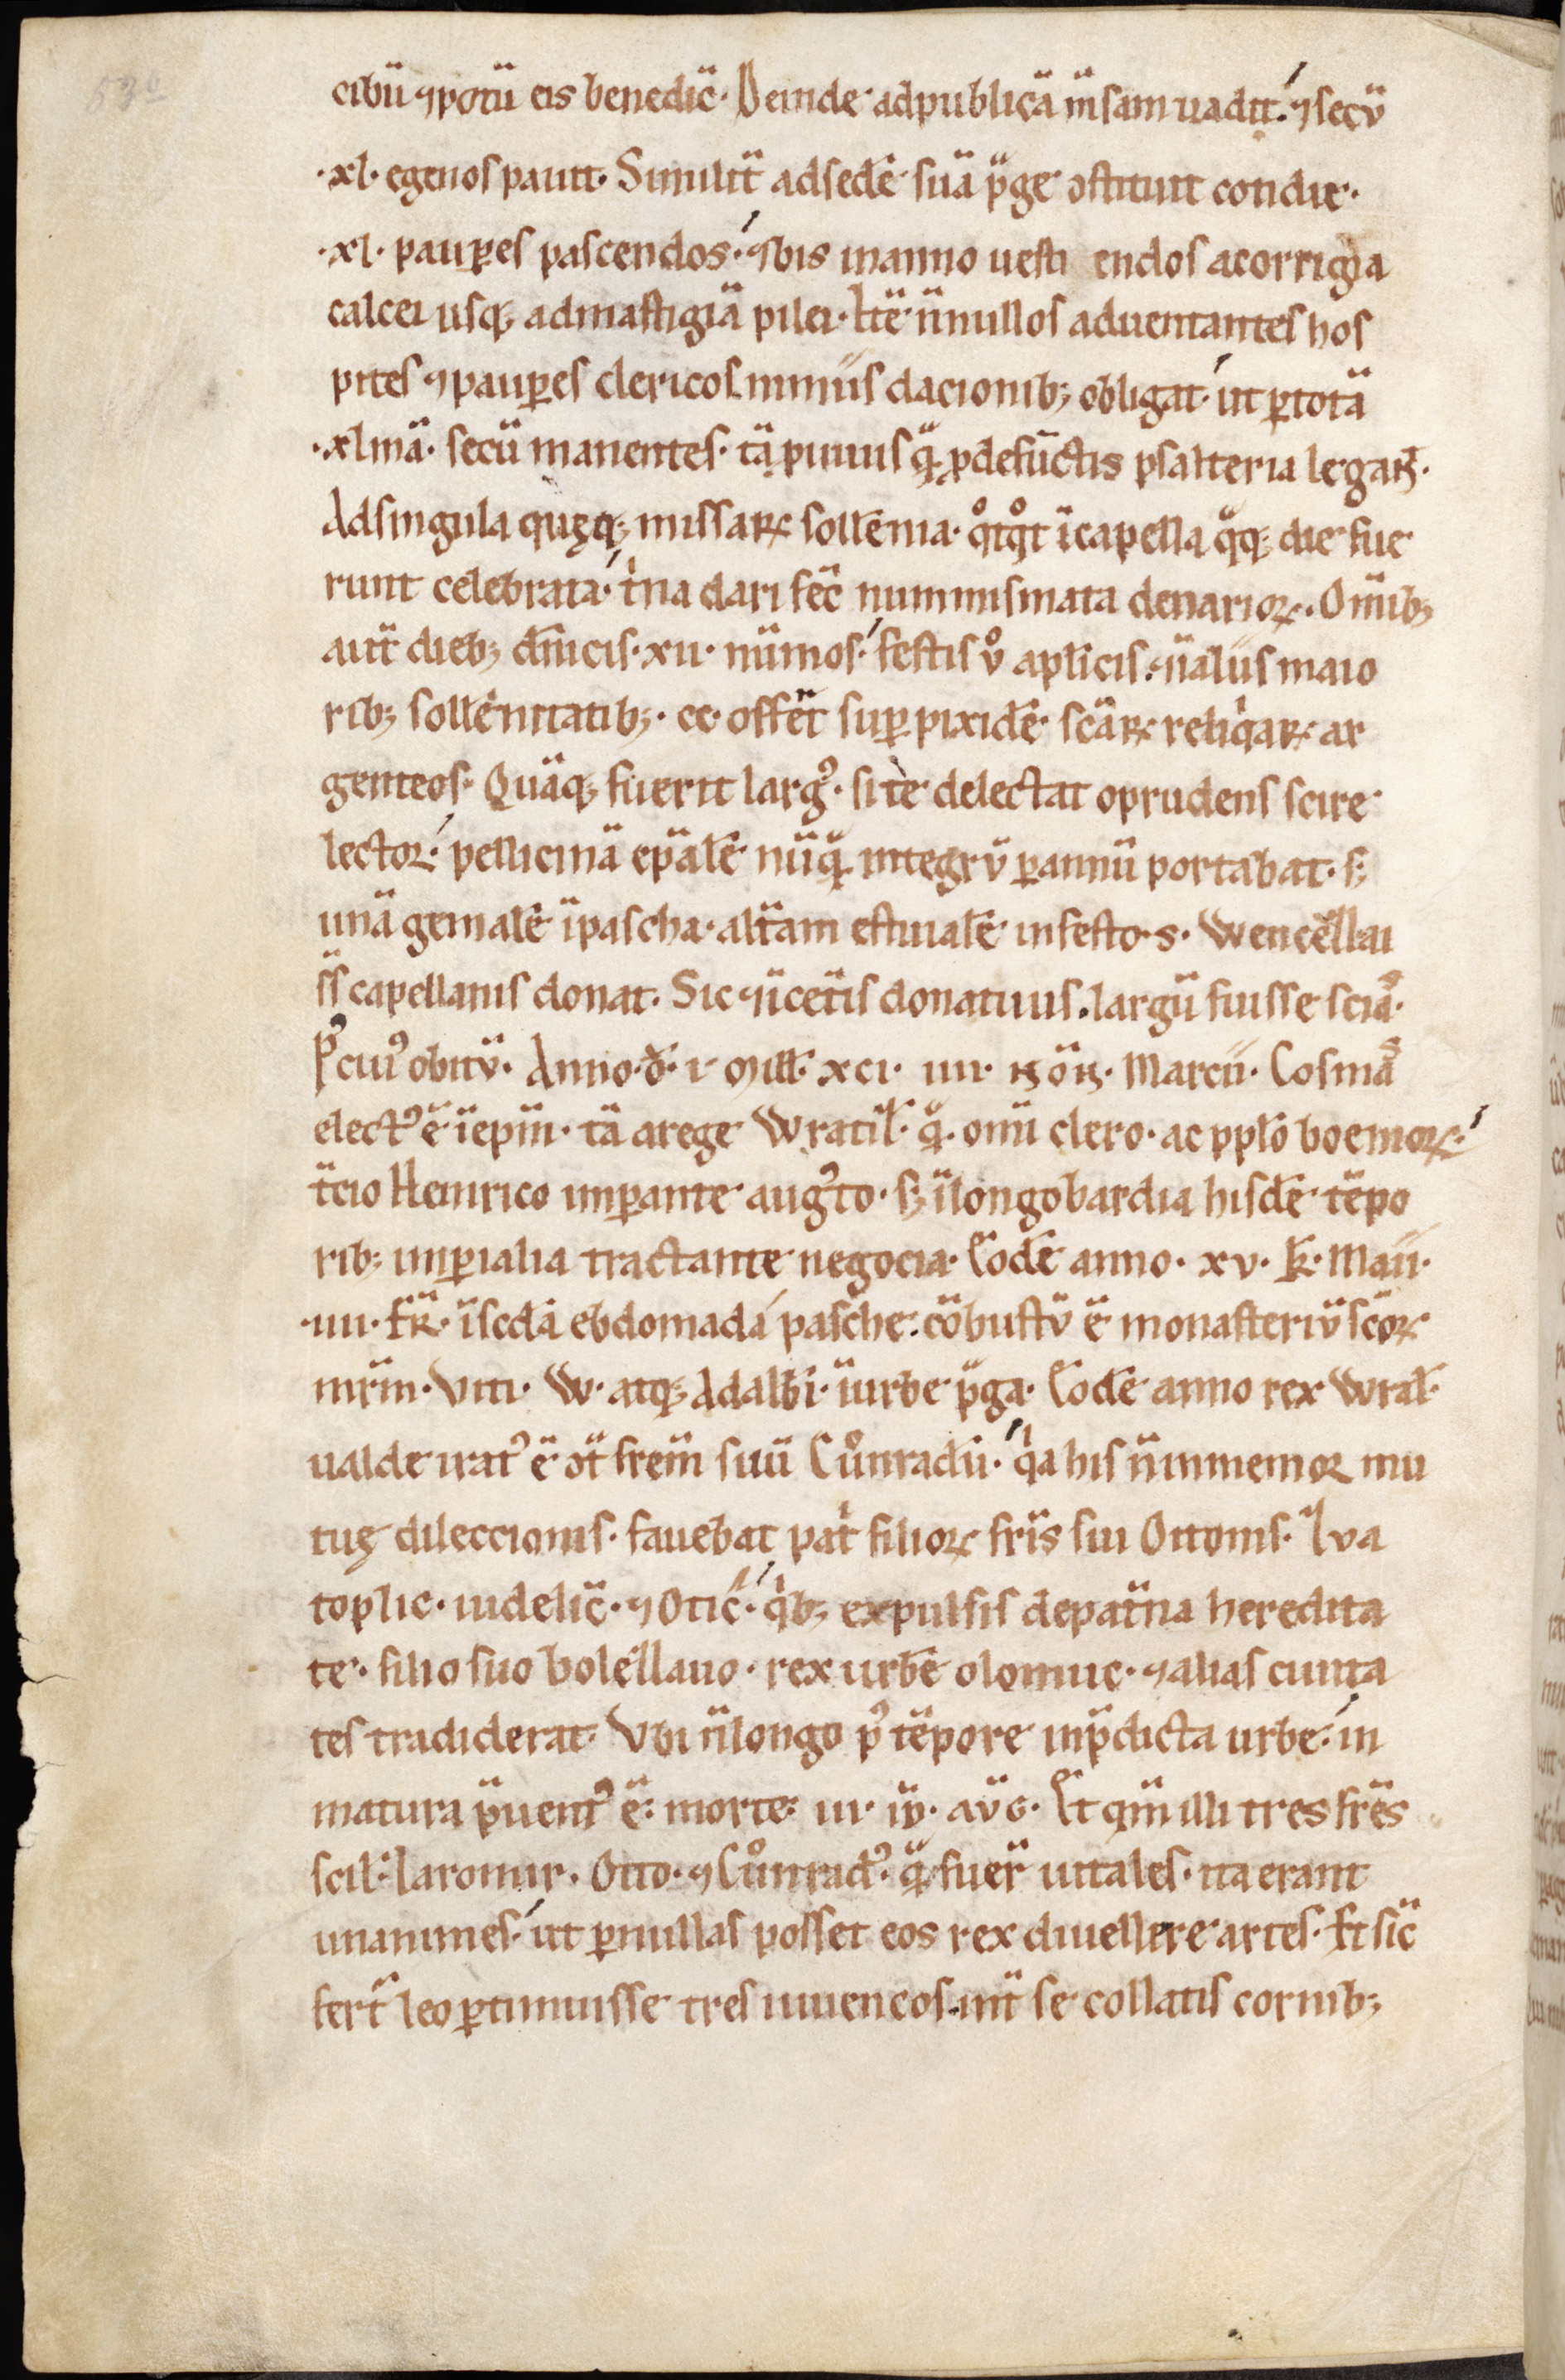 53b
cibū ⁊potū eis benedic̄. Deinde adpublicā m̄sam uadit. ⁊secū
.xl. egenos pauit. Similit̄ adsedē suā p̄ge ꝯstituit cotidie.
.xl. paup̱es pascendos. ⁊bis inanno uesti endos acorrigia
calcei usq; admastigiā pilei. Itē n̄nullos aduentantes hos
pites ⁊paup̱es clericos nimiis dacionib; obligat. ut p̱totā
.xlmā. secū manentes. tā p̱uiuis q̄. p̱defūctis psalteria legaɴ̄.
Adsingula quęq; missaꝝ sollēnia. qͦtqͦt īcapella qͦq; die fue
runt celebrata. tⁱna dari fec̄ nummismata denarioꝝ. Om̄ib;
aut̄ dieb; dn̄icis. xii. nūmos. festis vͦ aplicis. ⁊ī aliis maio
rib; sollēnitatib;. cc. offerr̄t sup̱ pixidē scāꝝ reliqⁱaꝝ ar
genteos. Quāq; fuerit larg⁹. si te delectat oprudens scire
lector. pelliciā ep̄alē nūq̄. integrū p̱annū portabat. s;
unā gemalē īpascha. alt̄am estiualē infesto. s. Wencēllai
s̄s capellanis donat. Sic ⁊īcet̄is donatiuis. largū fuisse sciā.
P⁹cui⁹ obitū. Anno. d̄. i. Mill̄. xci. iiii. ɴōɴ. Marcii. Cosmā
elect⁹ ē īep̄m. tā arege Wratil̄. q̄. om̄i clero. ac pplo boemoꝝ.
t̄cio Heinrico imp̱ante aug⁹to. s; īlongobardia hisdē tēpo
rib; imp̱ialia tractante negocia. Eodē anno. xv. k̄. Maii.
.iiii. fr̄. īscd̄a ebdomada pasche. cōbustū ē monasteriū scōꝝ
mr̄m. Viti. W. atq; Adalb̄i. īurbe p̄ga. Eodē anno rex Wral̄.
ualde irat⁹ ē ꝯt̄ frēm suū Cuͦnradū. qⁱa his n̄inmemor mu
tuę dileccionis. fauebat pat̄ filioꝝ frīs sui Ottonis. Zva
toplic. uidelic̄. ⁊Otic̄. qⁱb; expulsis depat̄na heredita
te. filio suo bolezllauo. rex urbē olomuc. ⁊alias ciuita
tes tradiderat. Vbi n̄longo p⁹ tēpore inp̄dicta urbe. in
matura p̄uent⁹ ē. morte. iii. iđ. avg. Et qm̄ illi tres frēs
scil̄. Iaromir. Otto. ⁊Cuͦnrad⁹. q̄. fuer̄ uitales. ita erant
unanimes. ut p̱nullas posset eos rex diuellere artes. Et sic̄
fert̄ leo p̱timuisse tres iuuencos. int̄ se collatis cornib;